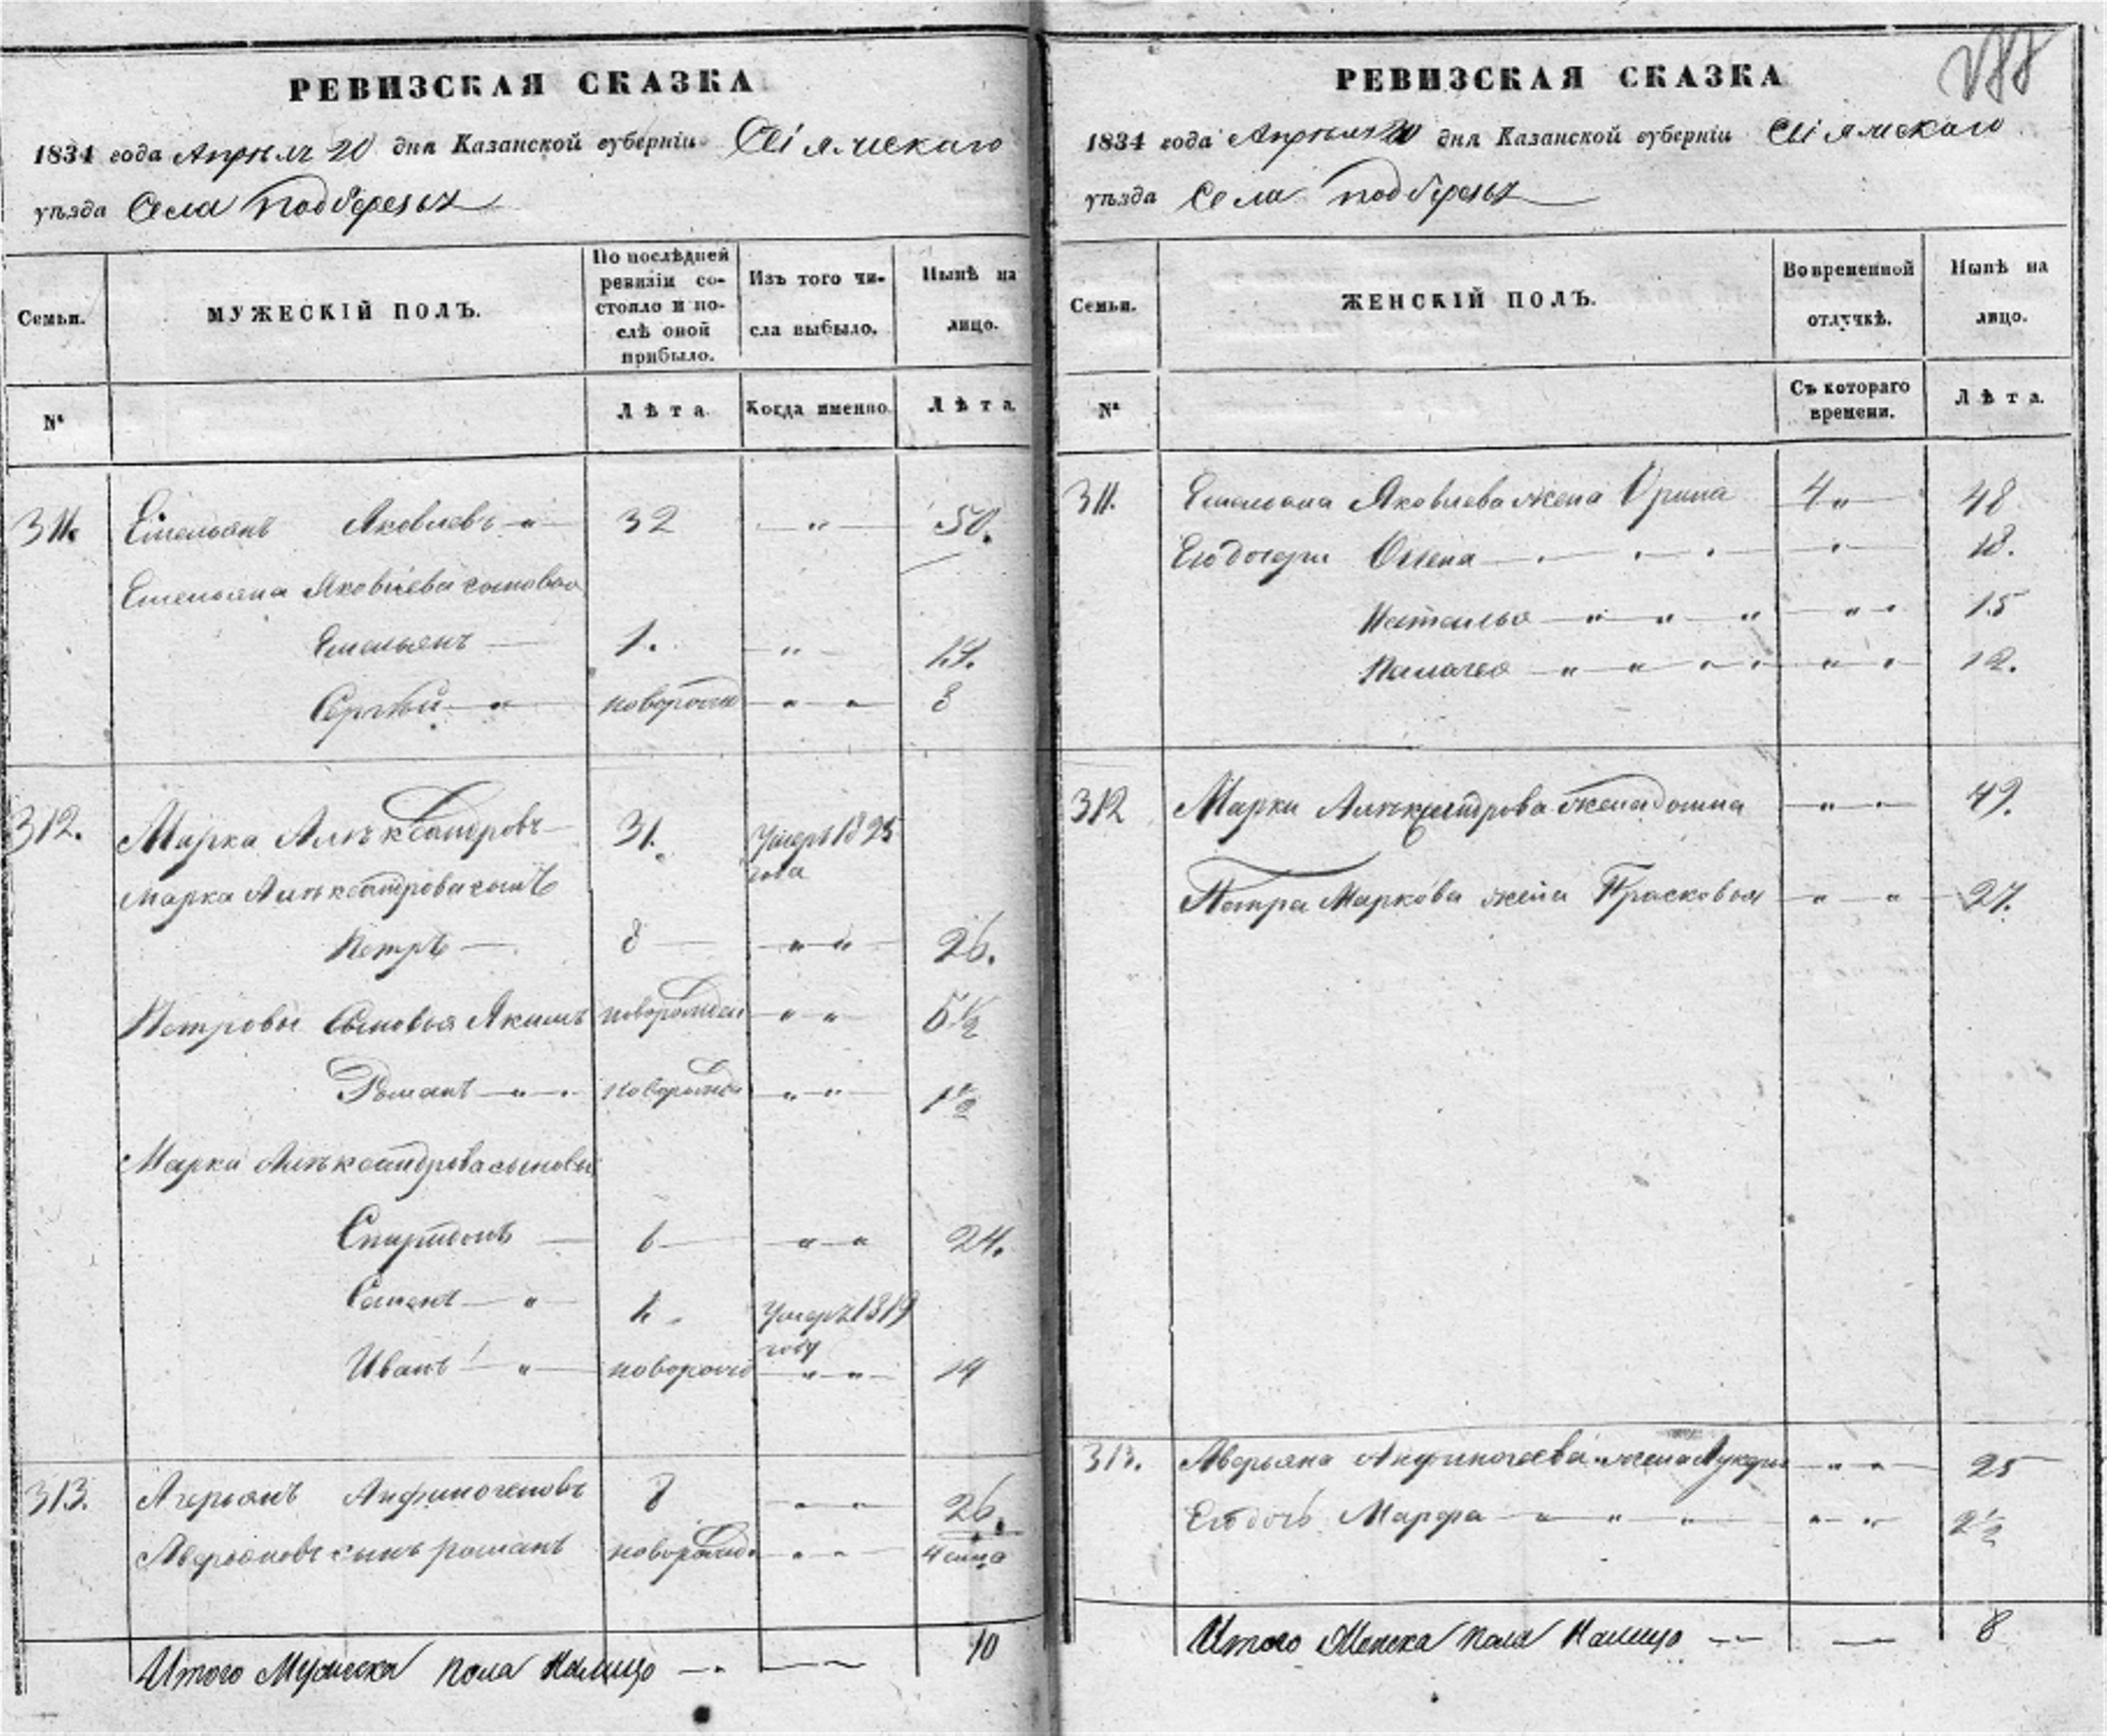 РЕВИЗСКАЯ СКАЗКА
1834 года Апреля 20 дня Казанской губерніи Свіяжскаго
уѣзда Села подберезья
Семьи.
МУЖЕСКІЙ ПОЛЪ.
По послѣдней ревизіи состояло и послѣ оной прибыло.
Изъ того числа выбыло.
Нынѣ на лицо.
№
Лѣта.
Когда именно.
Лѣта.
311. Емельянъ Яковлевъ 32 50.
Емельяна Яковлева сыновья
Емельянъ 1. 19.
Сергѣй новорожд 8
312. Марка Алѣксандровъ 31. Умеръ 1825 года
Марка Алѣксандрова сынъ
Петръ 8 26.
Петровы Сыновья Акимъ новорожден 5½
Романъ новорожден 1½
Марка Алѣксандрова сыновья
Спиридонъ 6 24.
Семенъ Умеръ 1819 году
Иванъ новорожд 14
313. Аверьянъ Анфиногеновъ 8 26.
Аверьяновъ сынъ романъ новорожд
Итого Мужеска пола налицо 10
188
РЕВИЗСКАЯ СКАЗКА
1834 года Апреля 20 дня Казанской губерніи Свіяжскаго
уѣзда Села подберезья
Семьи.
ЖЕНСКІЙ ПОЛЪ.
Во временной отлучкѣ.
Нынѣ на лицо.
№
Съ котораго времени.
Лѣта.
311. Емельяна Яковлева жена Орина 48
Его дочери Олена 18.
Наталья 15
Палагея 12.
312 Марки Алѣксандрова жена домна 49.
Петра Маркова жена Прасковья 27.
313. Аверьяна Анфиногеева жена Лукерья 25
Его дочь Марфа 2½
Итого Женска пола налицо 8